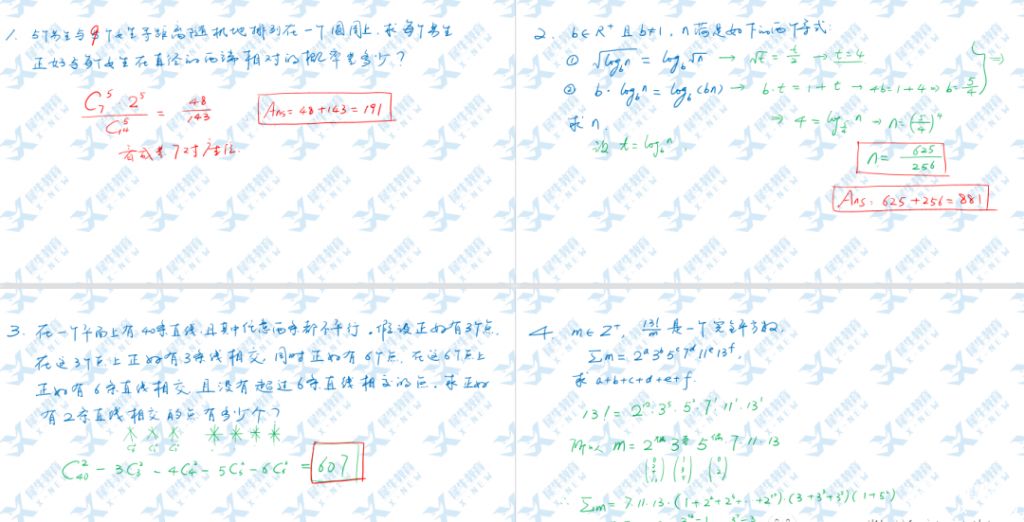 1. 5个男生与9个女生等距离随机地排列在一个圆周上.求每个男生
正好与女生在直径的两端相对的概率是多少?
C₇⁵·2⁵ / C₁₄⁵ = 48/143
Ans=48+143=191
7对座位.
2. b∈R⁺ 且 b≠1, n满足如下的两个等式:
① √(log_b n) = log_b √n → √t = t/2 → t=4
② b·log_b n = log_b(bn) → b·t=1+t → 4b=1+4 ⇒ b=5/4
求 n.
设 t=log_b n.
⇒ 4 = log_{5/4} n → n=(5/4)⁴
n = 625/256
Ans: 625+256=881
3. 在一个平面上有40条直线,且其中任意两条都不平行.假设正好有3个点,
在这3个点上正好有3条线相交.同时正好有个点,在这个点上
正好有6条直线相交.且没有超过6条直线相交的点.求正好
有2条直线相交的点有多少个?
C₄₀² − 3C₃² − 4C₄² − 5C₅² − 6C₆² = 607
4. m∈Z⁺, 13!/m 是一个完全平方数,
∑m = 2ᵃ3ᵇ5ᶜ7ᵈ11ᵉ13ᶠ,
求 a+b+c+d+e+f.
13! = 2¹⁰·3⁵·5²·7¹·11¹·13¹
所以 m = 2 3 5 7·11·13
∴ ∑m = 7·11·13·(1+2²+2⁴+···+2¹⁰)·(3+3³+3⁵)(1+5²)